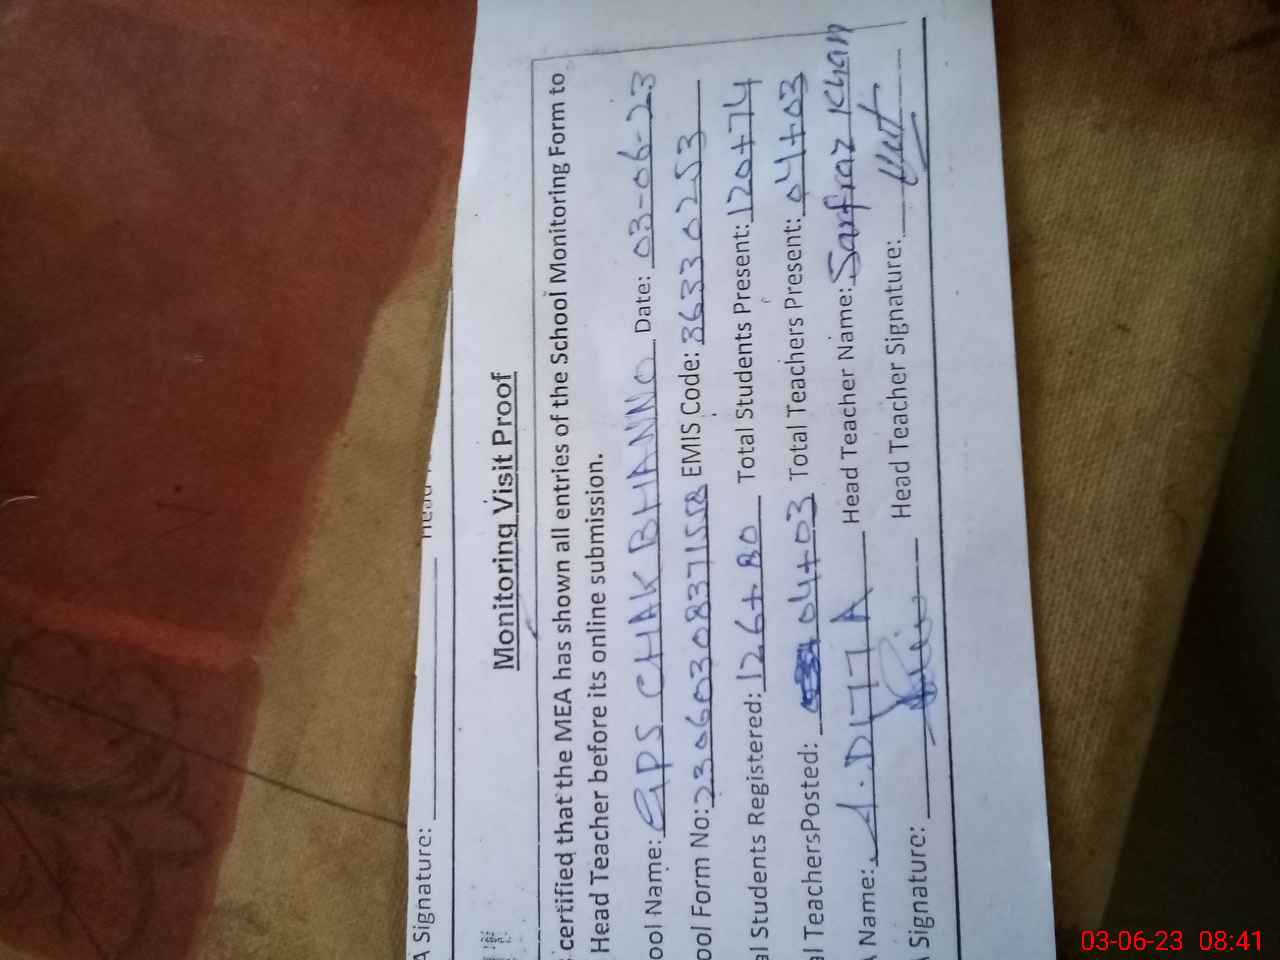 A Signature:
Monitoring Visit Proof
certified that the MEA has shown all entries of the School Monitoring Form to
Head Teacher before its online submission.
ool Name: GPS CHAK BHANNO Date: 03-06-23
ool Form No: EMIS Code: 36330253
al Students Registered: 126+80 Total Students Present: 120+74
al TeachersPosted: 04+03 Total Teachers Present: 04+03
A Name: A.DITTA Head Teacher Name: Sarfraz Khan
A Signature: Head Teacher Signature:
03-06-23 08:41